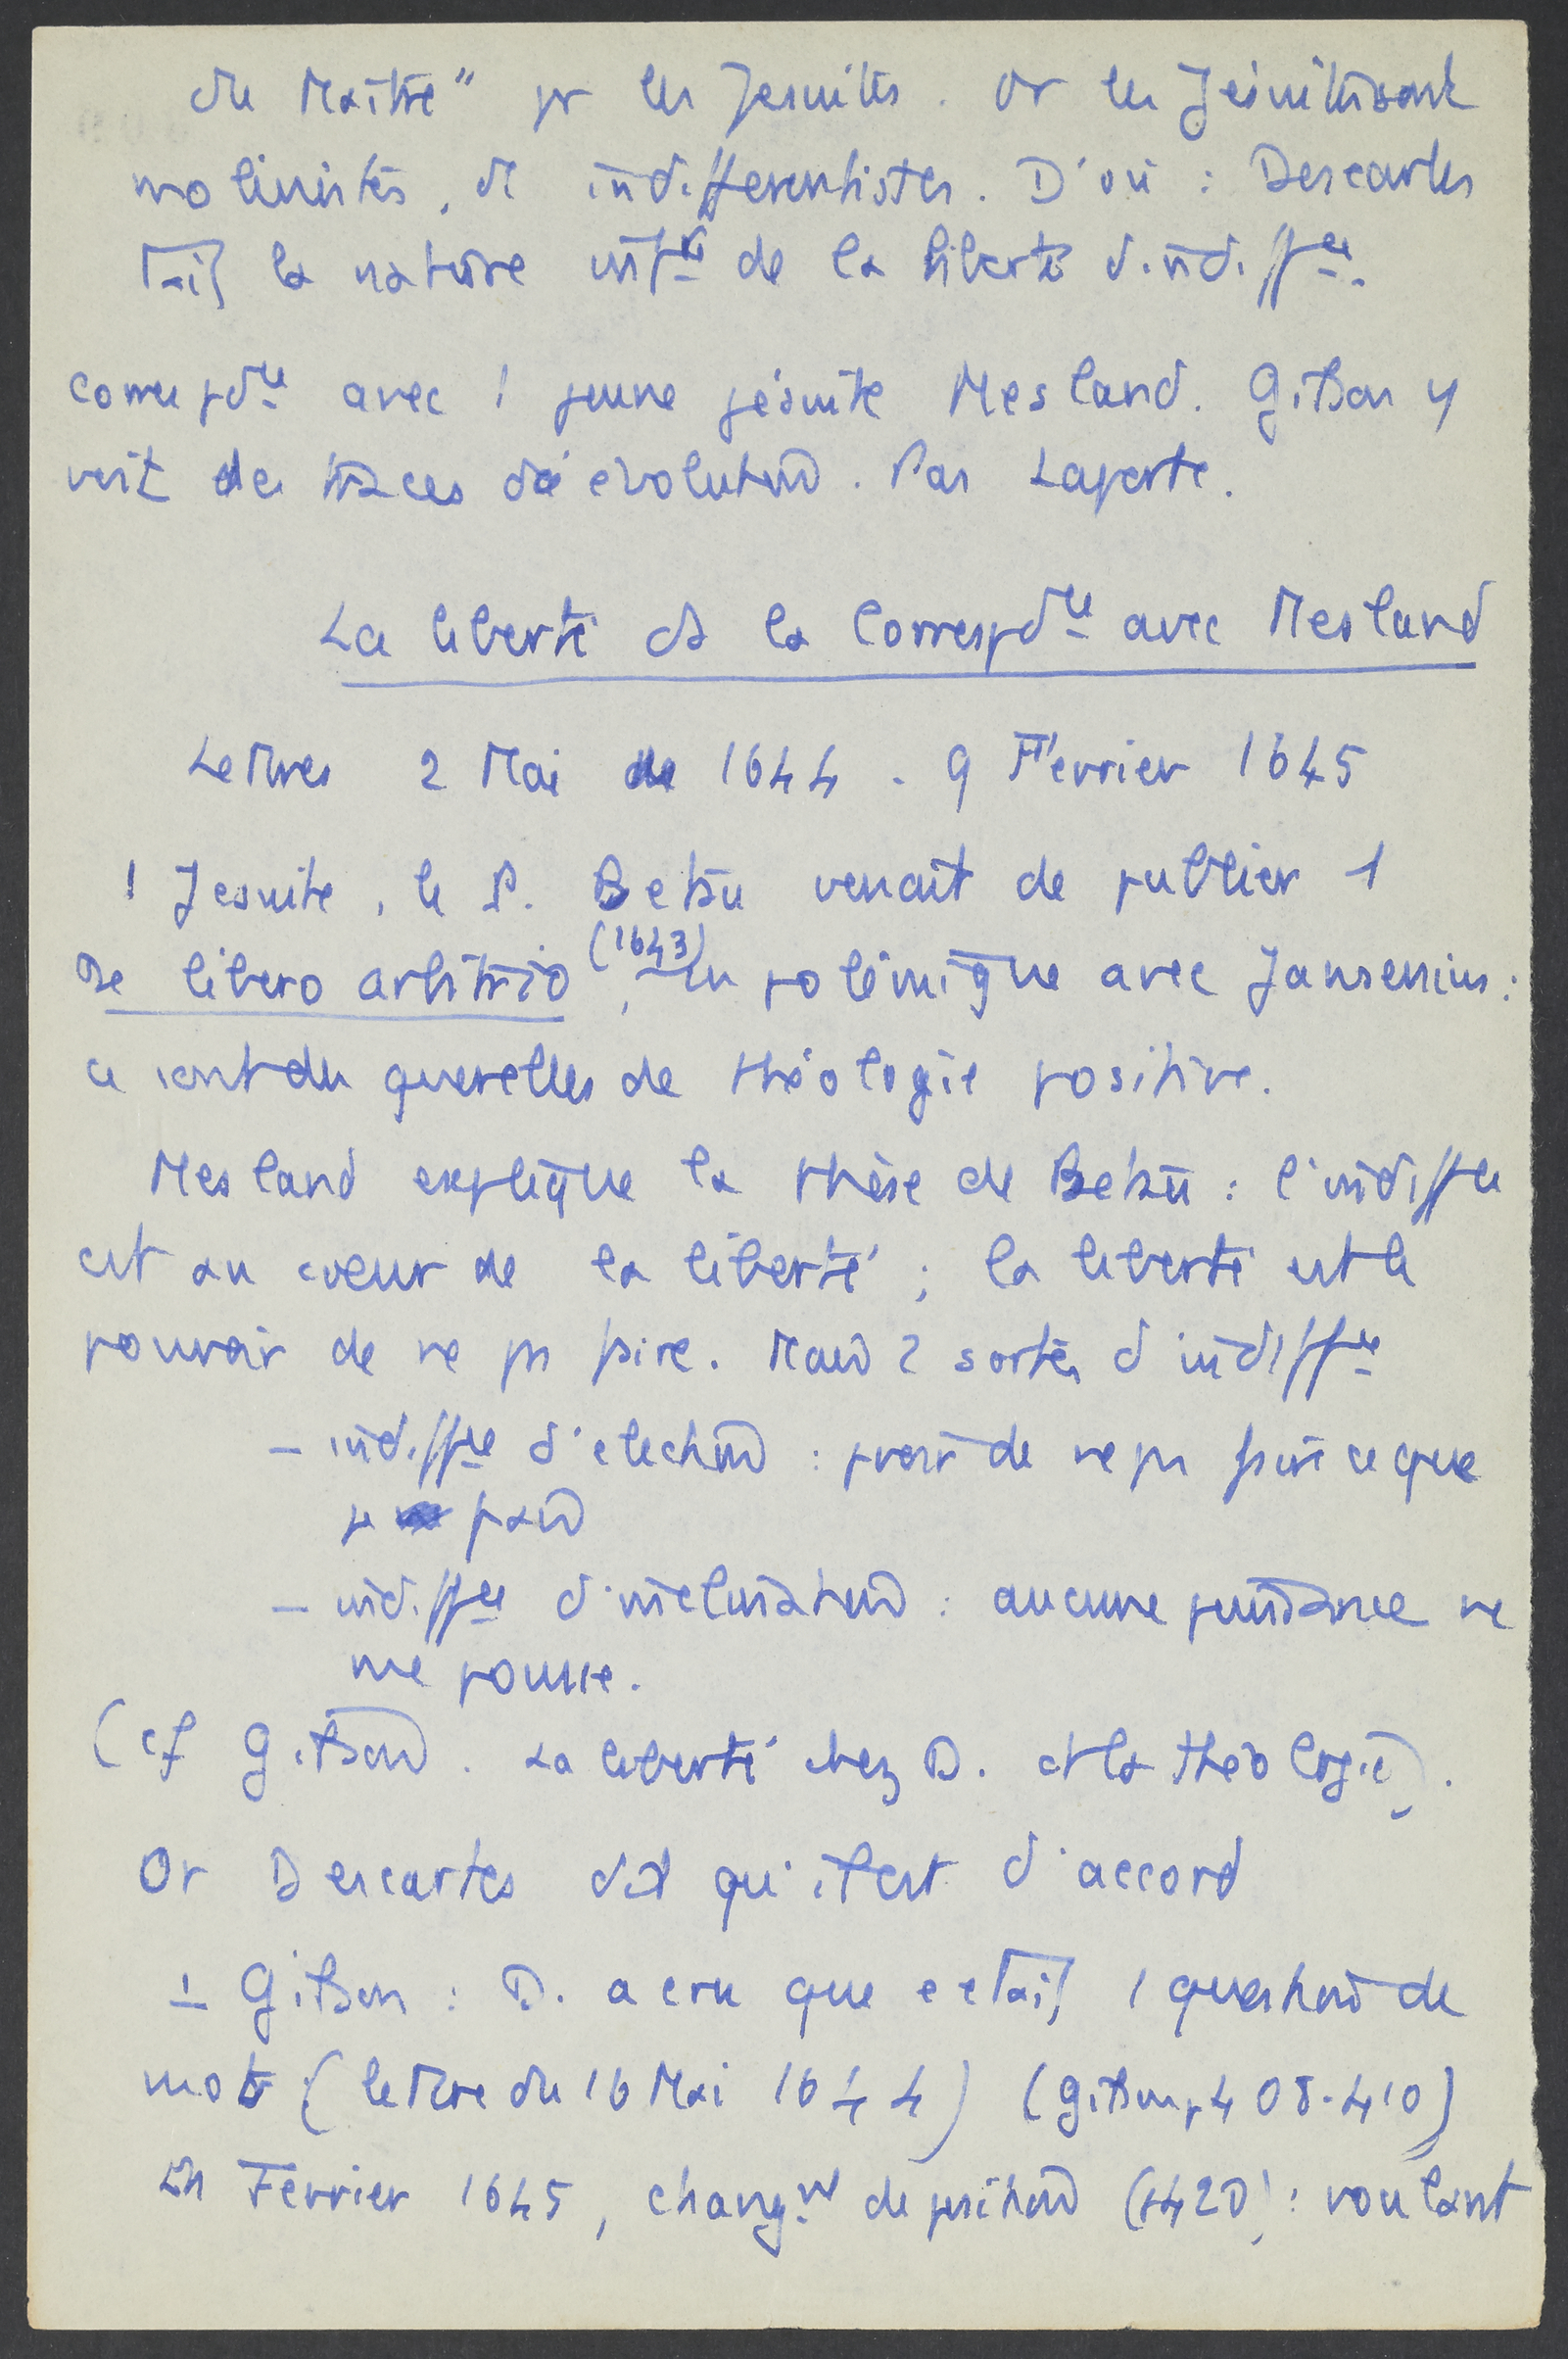 du Maître" pr les Jesuites. Or les Jésuites sont
molinistes, et indifferentistes. D'où : Descartes
tait la nature infre de la liberté d'indiffce.
correspdce avec 1 jeune jésuite Mesland. Gilson y
voit des traces d'évolution. Pas Laporte.
La liberté ds la Correspdce avec Mesland
Lettres 2 Mai de 1644 - 9 Février 1645
1 Jesuite, le P. Petau venait de publier 1
De libero arbitrio (1643), en polémique avec Jansenius :
ce sont des querelles de théologie positive.
Mesland explique la thèse de Petau : l'indiffce
est au coeur de la liberté ; la liberté est le
pouvoir de ne ps faire. Mais 2 sortes d'indiffce
- indiffce d'élection : pvoir de ne ps faire ce que
je fais
- indiffce d'inclination : aucune tendance ne
me pousse.
(cf Gilson. La liberté chez D. et la théologie).
Or Descartes dit qu'il est d'accord
- Gilson : D. a cru que c'etait 1 question de
mots (lettre du 16 Mai 1644) (Gilson, p 408-410)
En Février 1645, changt de position (p420) : voulant